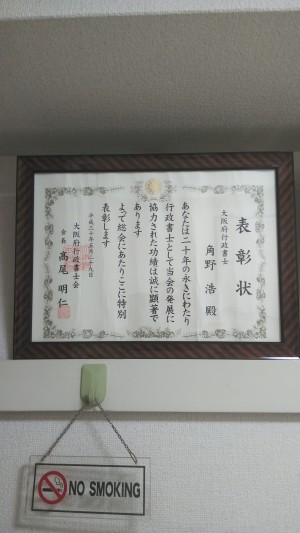 表彰状
大阪府行政書士
角野 浩 殿
あなたは二十年の永きにわたり
行政書士として当会の発展に
協力された功績は誠に顕著で
あります
よって総会にあたりここに特別
表彰します
平成三十年五月二十九日
大阪府行政書士会
会長 髙尾 明仁
NO SMOKING